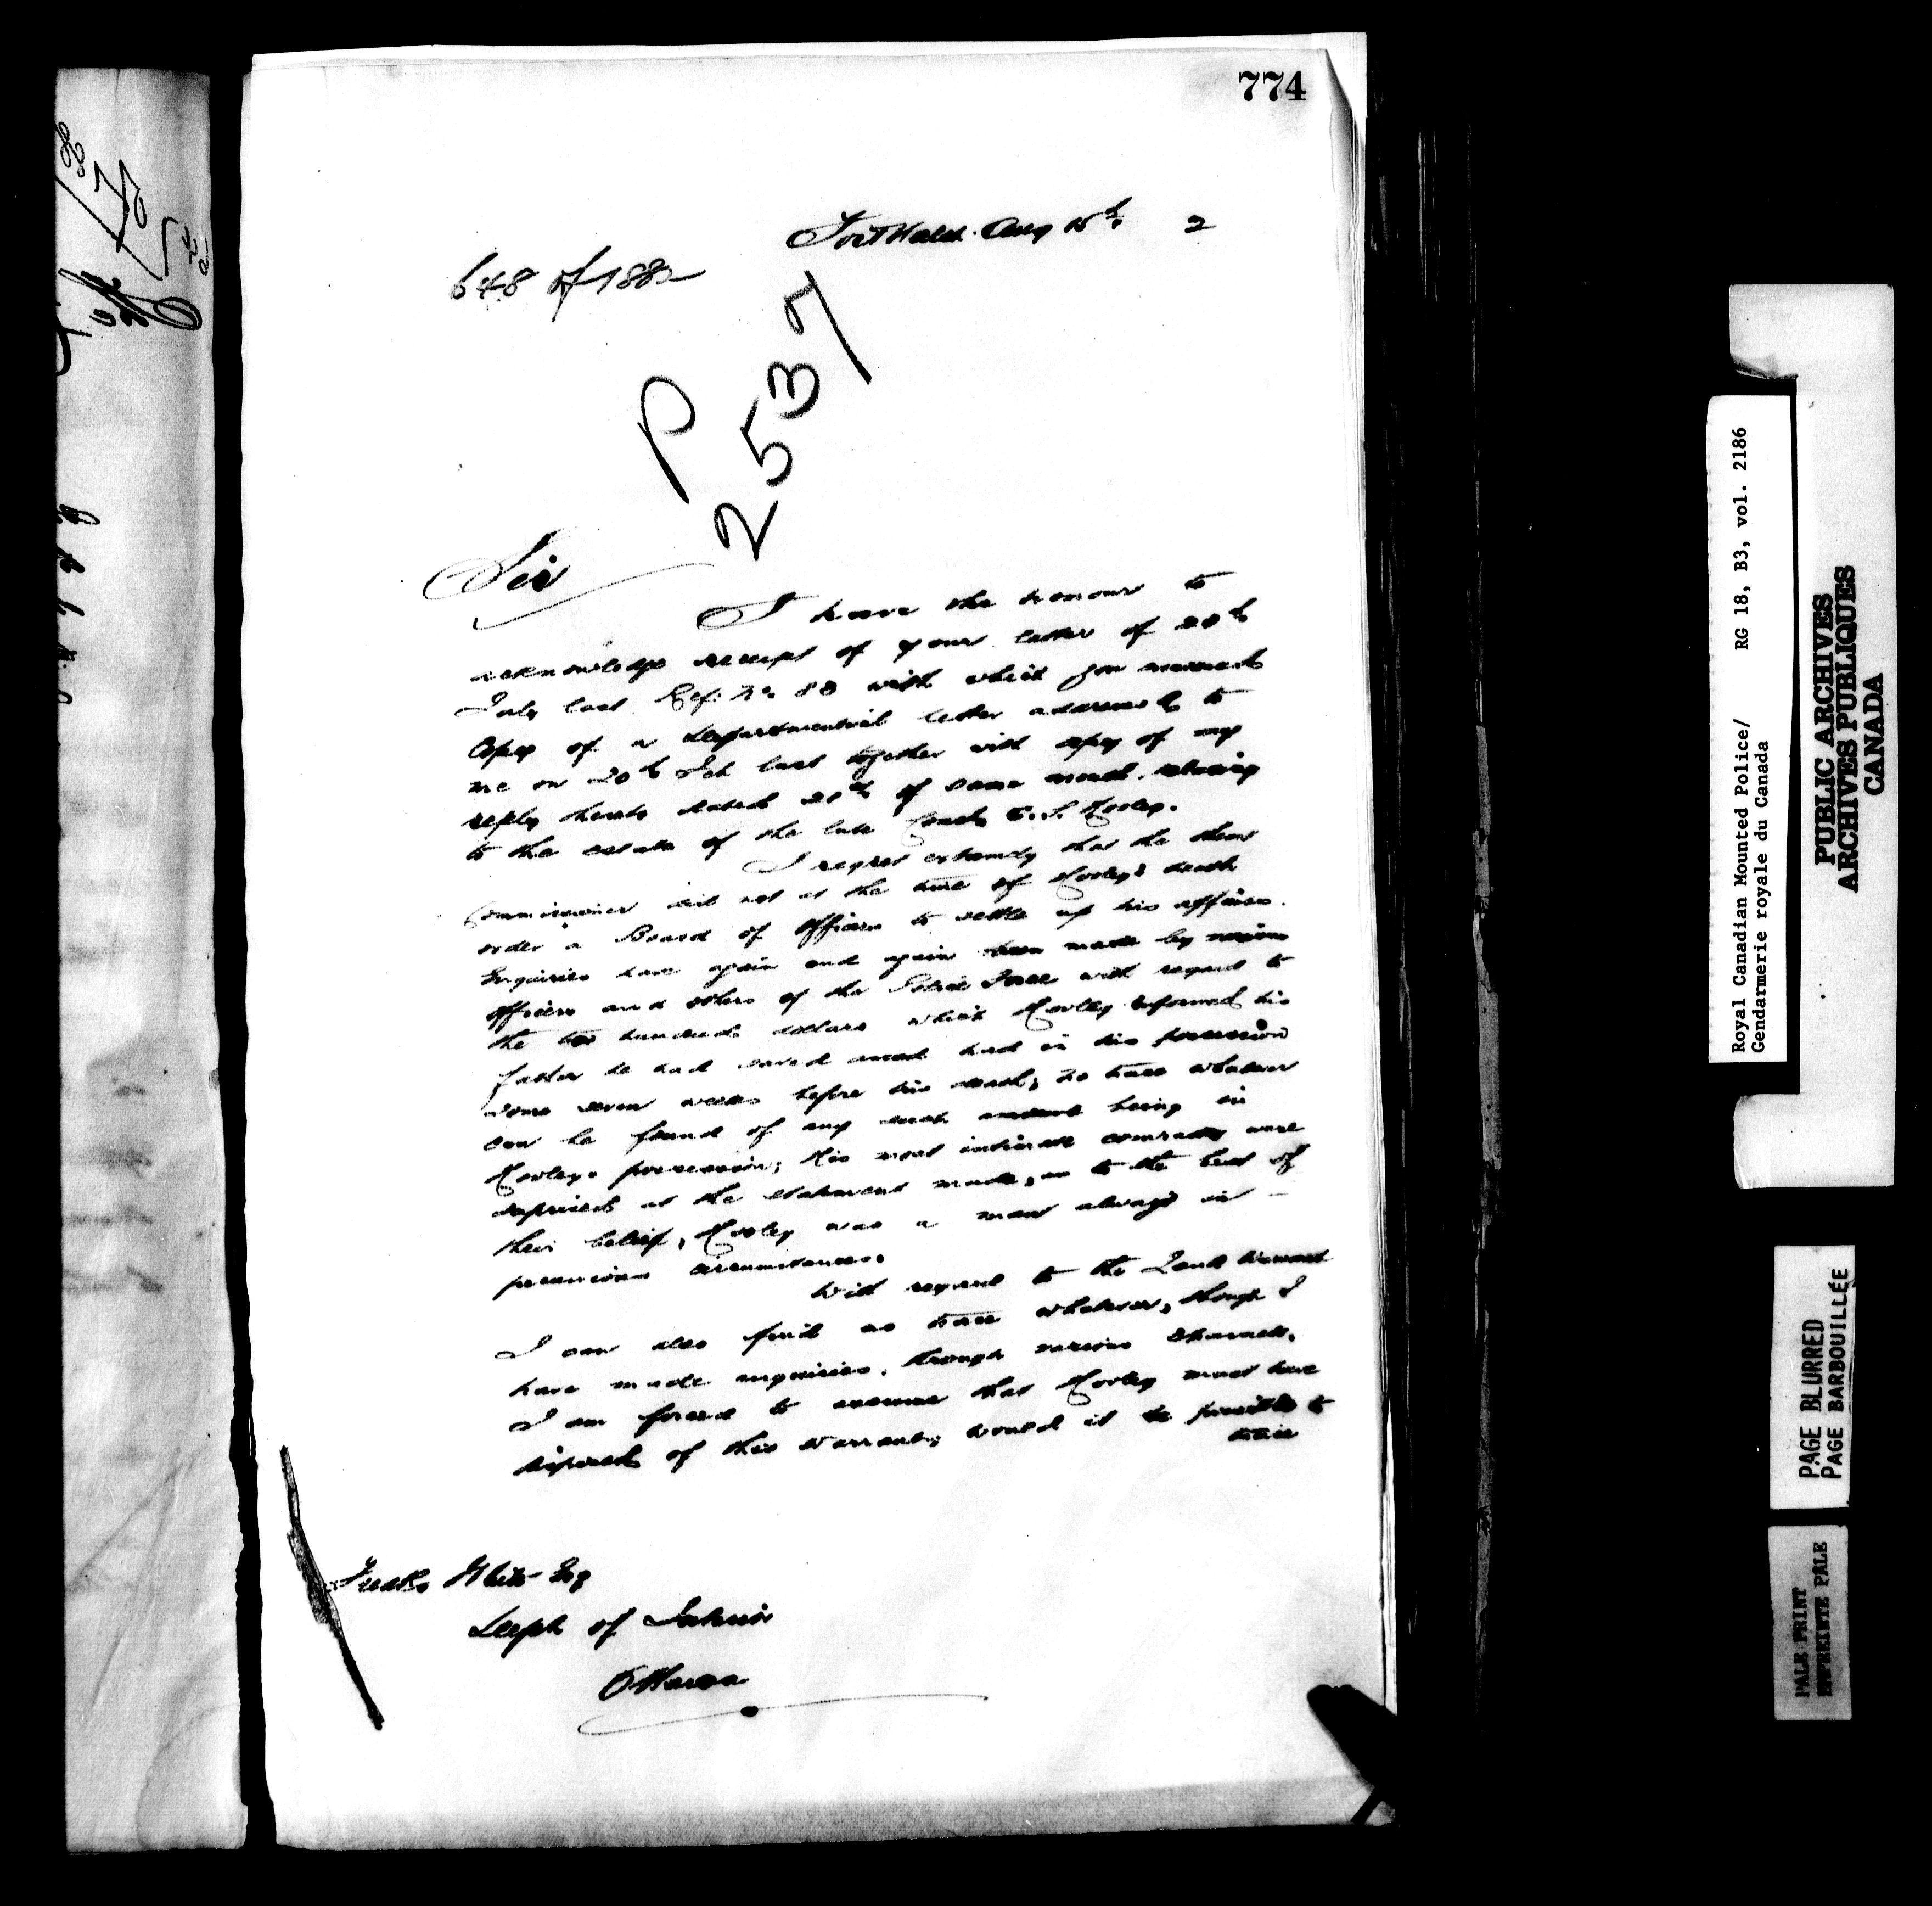 774
Fort Walsh Aug 15th 2
648 of 1882
P 2537
Sir
I have the honour to
acknowledge receipt of your letter of 28th
July last Ref. No 88 with which you
Copy of a Departmental letter addressed to
me on 20th Feb last together with copy of my
reply thereto dated of same month, relating
to the estate of the late Const.
I regret extremely that the then
Commissioner did not at the time of death
order a Board of Officers to settle up his affairs.
Inquiries have again and again been made by various
officers and others of the Police Force with regard to
the two hundred dollars which informed his
father he had saved and had in his possession
some seven weeks before his death; no trace whatever
can be found of any such amount being in
possession; his most intimate comrades were
surprised at the statement made, as to the best of
their belief, was a man always in
precarious circumstances.
With regard to the Land Warrant
I can also find no trace whatever, though I
have made inquiries, through various channels.
I am forced to assume that must have
disposed of this Warrant; would it be possible to
trace
White Esq
Dept of Interior
Ottawa
Royal Canadian Mounted Police/ RG 18, B3, vol. 2186
Gendarmerie royale du Canada
PUBLIC ARCHIVES
ARCHIVES PUBLIQUES
CANADA
PAGE BLURRED
PAGE BARBOUILLÉE
PALE PRINT
EMPREINTE PALE